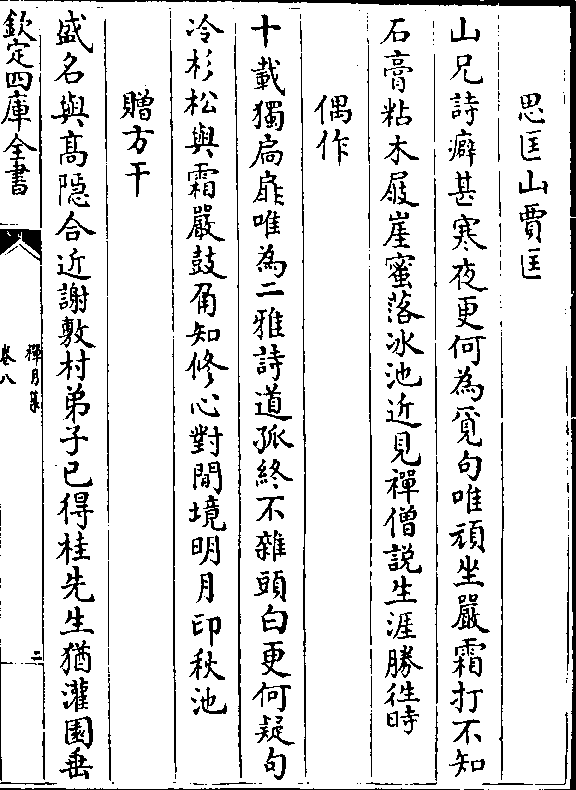 思匡山賈匡
山兄詩癖甚寒夜更何為覓句唯頑坐嚴霜打不知
石膏粘木屐崖蜜落冰池近見禪僧説生涯勝徃時
偶作
十載獨扄扉唯為二雅詩道孤終不雜頭白更何疑句
冷杉松與霜嚴鼓角知修心對閒境明月印秋池
贈方干
盛名與髙隠合近謝敷村弟子已得桂先生猶灌園垂
欽定四庫全書
禪月集
卷八
二